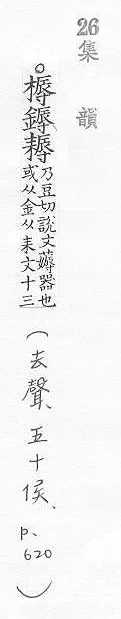 26集 韻
○槈鎒耨
乃豆切說文薅器也
或从金从耒文十三
(去聲、五十候、p.620)